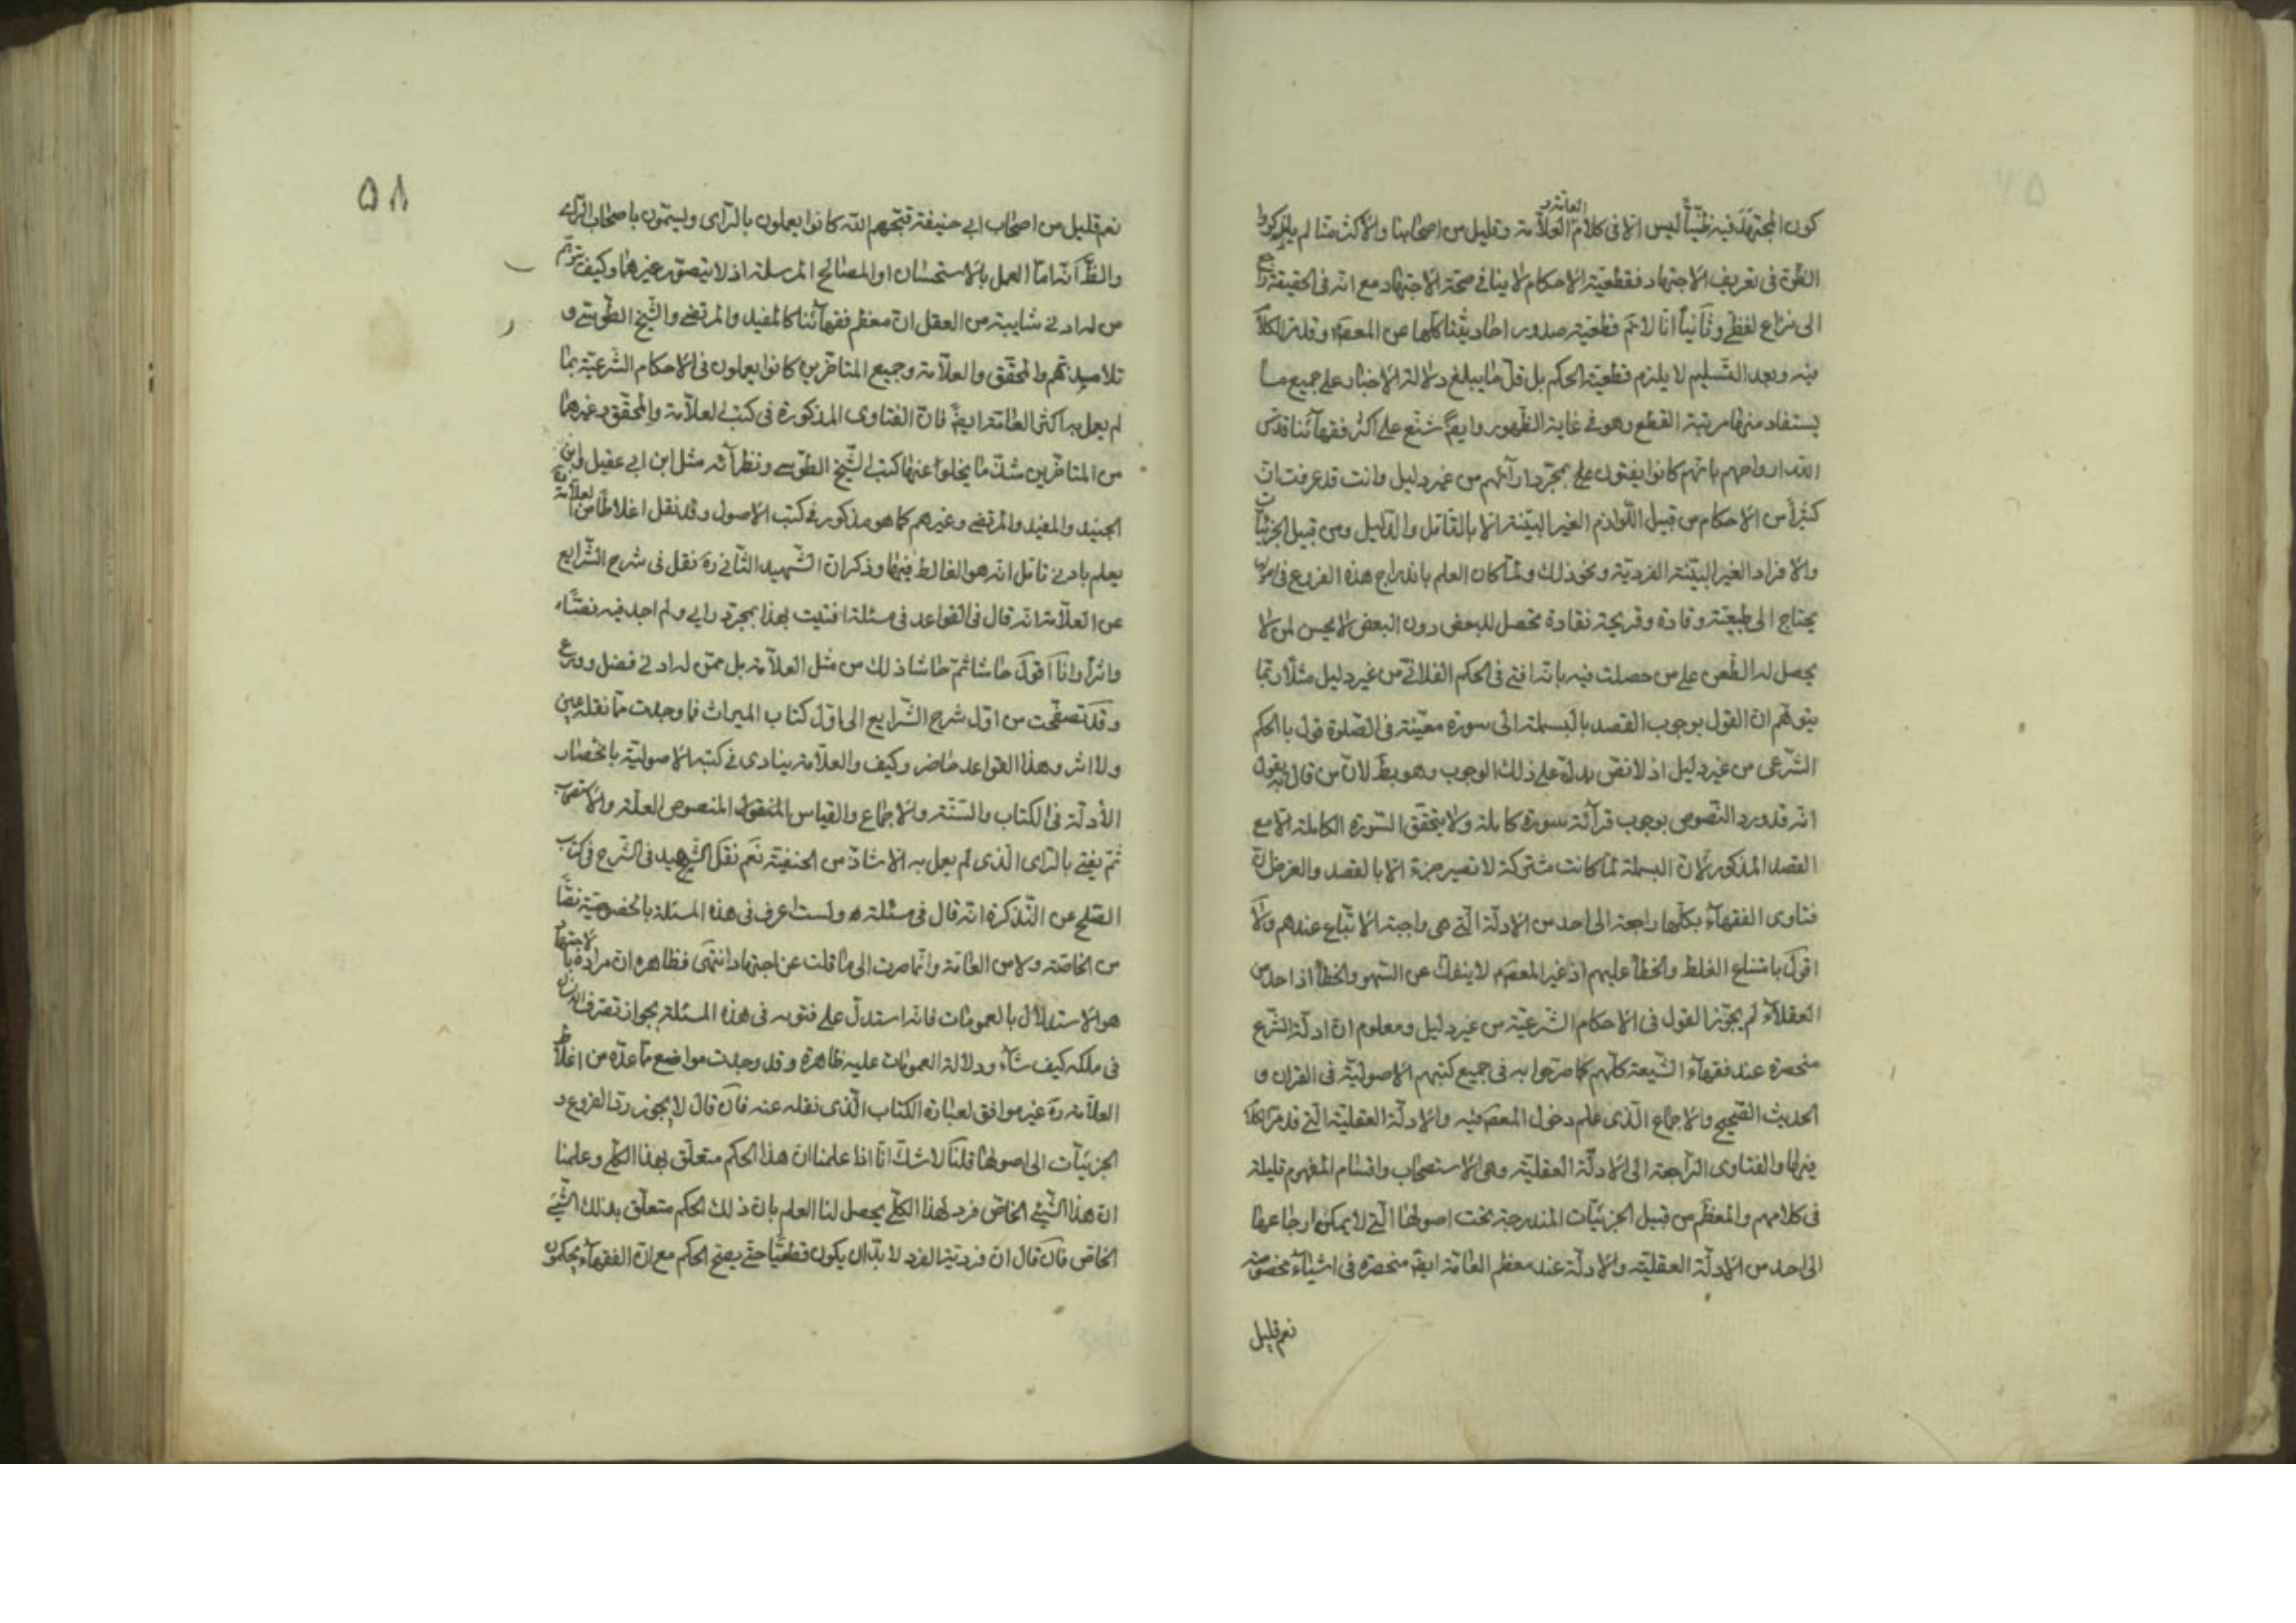 كون المجتهد فيه ظنّيّاً ليس الّا فى كلام العلّامة وقليل من اصحابنا والاكثر منّا لم يذكروا
الظنّ فى تعريف الاجتهاد فقطعيّة الاحكام لا ينافى صحّة الاجتهاد مع انّه فى الحقيقة راجع
الى نزاع لفظى وثانياً انّا لا نمّ قطعيّة صدور احاديثنا كلّها عن المعصوم وقد مرّ الكلام
فيه وبعد التسليم لا يلزم قطعيّة الحكم بل قلّ ما يبلغ دلالة الاخبار على جميع ما
يستفاد منها مرتبة القطع وهو فى غاية الظهور وايضً شنّع على اكثر فقهائنا قدّس
اللّه ارواحهم بانّهم كانوا يفتون على بمجرّد ارائهم من غير دليل وانت قد عرفت انّ
كثيراً من الاحكام من قبيل اللّوازم الغير البيّنة الّا بالتّأمّل والدّليل ومن قبيل الجزئيّات
والافراد الغير البيّنة الفرديّة ونحو ذلك ولمّا كان العلم باندراج هذه الفروع فى الاصول
يحتاج الى طبيعة وقّادة وقريحة نقّادة تحصل للبعض دون البعض لا يحسن لمن لا
يحصل له الطّعن على من حصلت فيه بانّه افتى فى الحكم الفلانى من غير دليل مثلاً ربّما
يتوهّم انّ القول بوجوب القصد بالبسملة الى سورة معيّنة فى الصّلوة قول بالحكم
الشّرعى من غير دليل اذ لا نصّ يدلّ على ذلك الوجوب وهو بط لانّ من قال به يقول
انّه قد ورد النّصوص بوجوب قرآئة سورة كاملة ولا يتحقّق السّورة الكاملة الّا مع
القصد المذكور لانّ البسملة لمّا كانت مشتركة لا تصير جزء الّا بالقصد والغرض انّ
فتاوى الفقهآء بكلّها راجعة الى احد من الادلّة الّتى هى واجبة الاتّباع عندهم ولا
اقول بامتناع الغلط والخطأ عليهم اذ غير المعصوم لا ينفكّ عن السّهو والخطأ اذ احد من
العقلآء لم يجوّز القول فى الاحكام الشّرعيّة من غير دليل ومعلوم انّ ادلّة الشّرع
منحصرة عند فقهآء الشّيعة كلّهم كما صرّحوا به فى جميع كتبهم الاصوليّة فى القران و
الحديث الصّحيح والاجماع الّذى علم دخول المعصوم فيه والادلّة العقليّة الّتى قد مرّ الكلام
فيها والفتاوى الرّاجعة الى الادلّة العقليّة وهى الاستصحاب واقسام المفهوم قليلة
فى كلامهم والمعظم من قبيل الجزئيّات المندرجة تحت اصولها الّتى لا يمكن ارجاعها
الى احد من الادلّة العقليّة والادلّة عند معظم العامّة ايضً منحصرة فى اشيآء مخصوصة
نعم قليل
٥٨
نعم قليل من اصحاب ابى حنيفة قبّحهم اللّه كانوا يعملون بالرّاى ويسمّون باصحاب الرّاى
والظّ انّه امّا العمل بالاستحسان او المصالح المرسلة اذ لا يتصوّر غيرهما وكيف يتوهّم
من له ادنى شايبة من العقل انّ معظم فقهآئنا كالمفيد والمرتضى والشّيخ الطّوسى و
تلاميذتهم والمحقّق والعلّامة وجميع المتاخّرين كانوا يعملون فى الاحكام الشّرعيّة بما
لم يعمل به اكثر العامّة ايضً فانّ الفتاوى المذكورة فى كتب العلّامة والمحقّق وغيرهما
من المتاخّرين ما يخلوا عنها كتب الشّيخ الطّوسى ونظرآئه مثل ابن ابى عقيل وابن
الجنيد والمفيد والمرتضى وغيرهم كما هو مذكور فى كتب الاصول وقد نقل اغلاطاً من العلّامة
يعلم بادنى تامّل انّه هو الغالط فيها وذكر انّ الشّهيد الثّانى ره نقل فى شرح الشّرايع
عن العلّامة انّه قال فى القواعد فى مسئلة افتيت بهذا بمجرّد رايى ولم اجد فيه نصّاً
واثراً وانا اقول حاشا ثمّ حاشا ذلك من مثل العلّامة بل ممّن له ادنى فضل وورع
وقد تصفّحت من اوّل شرح الشّرايع الى اوّل كتاب الميراث فما وجدت ممّا نقله عين
ولا اثر وهذا القواعد حاضر وكيف والعلّامة ينادى فى كتبه الاصوليّة بانحصار
الأدلّة فى الكتاب والسّنّة والاجماع والقياس المنصوص العلّة والاستصحاب
ثمّ يفتى بالرّاى الّذى لم يعمل به الّا شاذّ من الحنفيّة نعم نقل الشّهيد فى الشّرح فى كتاب
الصّلح عن التّذكرة انّه قال فى مسئلة ولست اعرف فى هذه المسئلة بالخصوصيّة نصّاً
من الخاصّة ولا من العامّة وانّما صرت الى ما قلت عن اجتهاد انتهى فظاهره انّ مراده بالاجتهاد
هو الاستدلال بالعمومات فانّه استدلّ على فتويه فى هذه المسئلة بجواز تصرّف الانسان
فى ملكه كيف شآء ودلالة العمومات عليه ظاهرة وقد وجدت مواضع ممّا عدّه من اغلاط
العلّامة ره غير موافق لعبارة الكتاب الّذى نقله عنه فان قال لا يجوز ردّ الفروع و
الجزئيّات الى اصولها قلنا لا شكّ انّا اذا علمنا انّ هذا الحكم متعلّق بهذا الكلّى وعلمنا
انّ هذا الشّىء الخاصّ فرد لهذا الكلّى يحصل لنا العلم بانّ ذلك الحكم متعلّق بذلك الشّىء
الخاصّ فان قال انّ فرديّة الفرد لا بدّ ان يكون قطعيّاً حتّى يصحّ الحكم مع انّ الفقهآء يحكمون